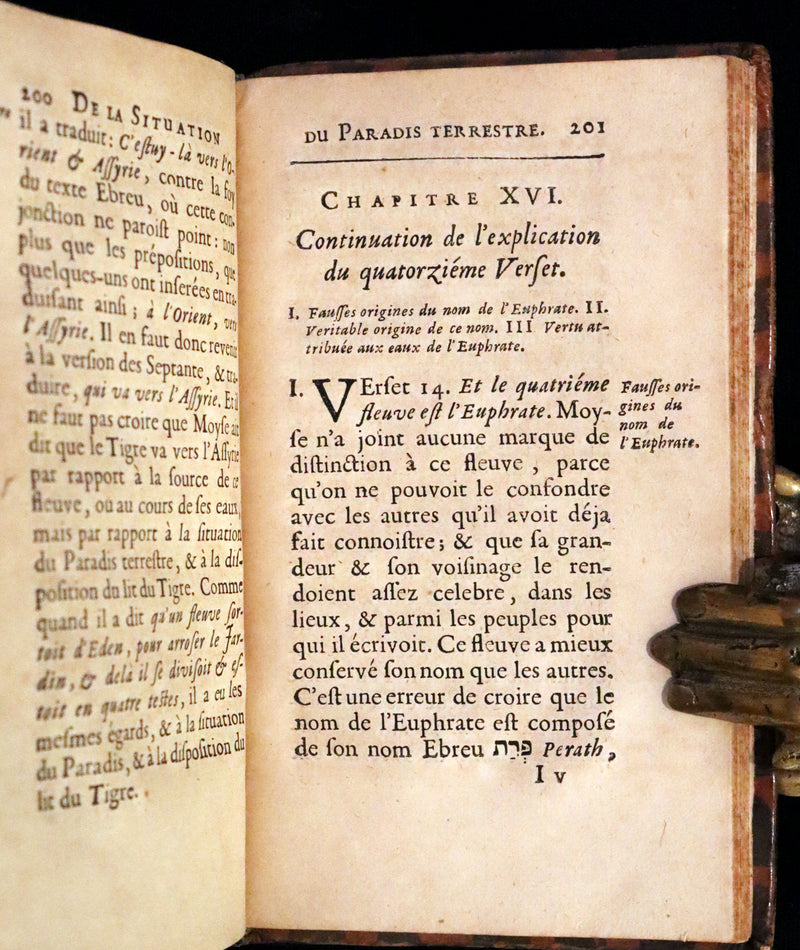 200 DE LA SITUATION
il a traduit: C'eſtuy-là vers l'O-
rient & Aſſyrie, contre la foy
du texte Ebreu, où cette con-
jonction ne paroiſt point: non
plus que les prépoſitions, que
quelques-uns ont inſerées en tra-
duiſant ainſi; à l'Orient, vers
l'Aſſyrie. Il en faut donc revenir
à la verſion des Septante, & tra-
duire, qui va vers l'Aſſyrie. Et il
ne faut pas croire que Moyſe ait
dit que le Tigre va vers l'Aſſyrie
par rapport à la ſource de ce
fleuve, ou au cours de ſes eaux,
mais par rapport à la ſituation
du Paradis terreſtre, & à la diſ-
poſition du lit du Tigre. Comme
quand il a dit qu'un fleuve ſor-
toit d'Eden, pour arroſer le Jar-
din, & delà il ſe diviſoit & eſ-
toit en quatre teſtes, il a eu les
meſmes égards, & à la ſituation
du Paradis, & à la diſpoſition du
lit du Tigre.
DU PARADIS TERRESTRE. 201
CHAPITRE XVI.
Continuation de l'explication
du quatorziéme Verſet.
I. Fauſſes origines du nom de l'Euphrate. II.
Veritable origine de ce nom. III Vertu at-
tribuée aux eaux de l'Euphrate.
I. VErſet 14. Et le quatriéme
fleuve eſt l'Euphrate. Moy-
ſe n'a joint aucune marque de
diſtinction à ce fleuve, parce
qu'on ne pouvoit le confondre
avec les autres qu'il avoit déja
fait connoiſtre; & que ſa gran-
deur & ſon voiſinage le ren-
doient aſſez celebre, dans les
lieux, & parmi les peuples pour
qui il écrivoit. Ce fleuve a mieux
conſervé ſon nom que les autres.
C'eſt une erreur de croire que le
nom de l'Euphrate eſt compoſé
de ſon nom Ebreu פְּרָת Perath,
I v
Fauſſes ori-
gines du
nom de
l'Euphrate.